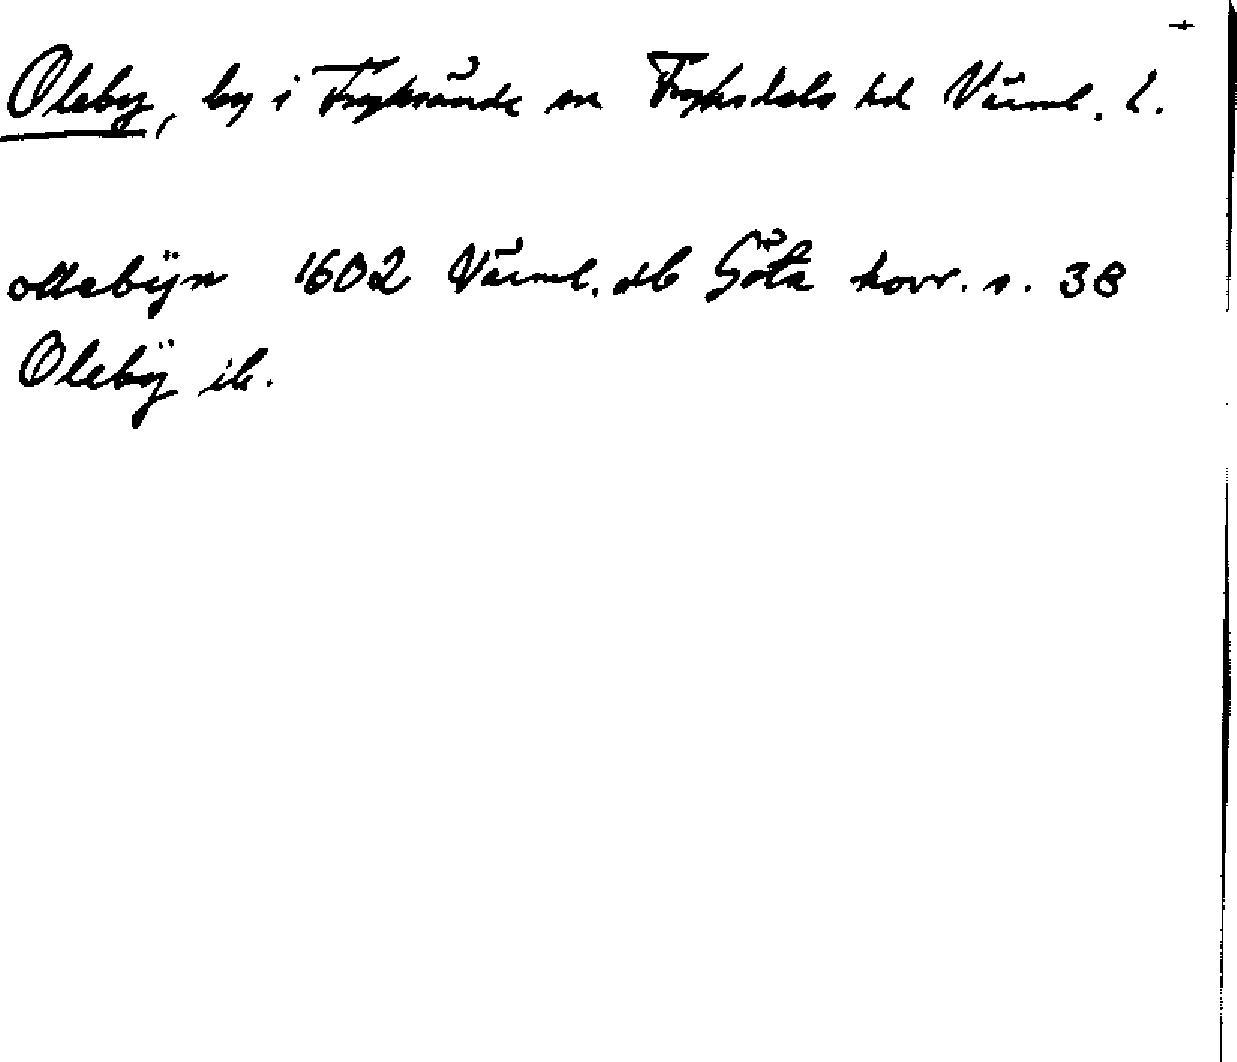 Oleby, by i Fryksände sn Fryksdals hd Värml. l.
ollebÿn 1602 Värml. db Göta hovr. s. 38
Olebÿ ib.